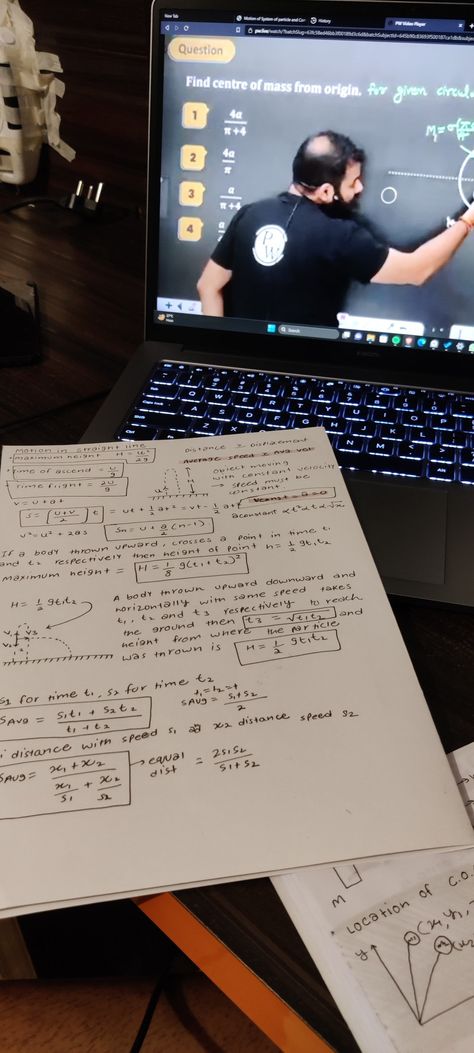 New Tab
Motion of System of particle and Cen
History
PW Video Player
Question
Find centre of mass from origin. For given circula
1 4a/π+4
2 4a/π
3 a/π+4
4
PW
Search
Motion in straight line
maximum height H = u²/2g
Time of ascend = u/g
Time flight = 2u/g
v = u+at
S = (u+v/2) t = ut + 1/2 at² = vt - 1/2 at²
v² = u² + 2as
Sn = u + a/2 (n-1)
Distance ≥ Displacement
Average speed ≥ Avg vel
Object moving
with constant velocity
→ speed must be
constant.
If a body thrown upward, crosses a point in time t₁
and t₂ respectively then height of point h = 1/2 gt₁t₂
maximum height = H = 1/8 g(t₁+t₂)²
H = 1/2 gt₁t₂
A body thrown upward downward and
horizontally with same speed takes
t₁, t₂ and t₃ respectively to reach
the ground then t₃ = √t₁t₂ and
height from where the particle
was thrown is H = 1/2 gt₁t₂
S₁ for time t₁, S₂ for time t₂
t₁=t₂=t
SAvg = S₁t₁ + S₂t₂/t₁+t₂
SAvg = S₁+S₂/2
distance with speed S₁ x₂ distance speed S₂
SAvg = x₁+x₂/x₁/S₁ + x₂/S₂ → equal dist = 2S₁S₂/S₁+S₂
M
Location of C.O.
y
(x₁,y₁,